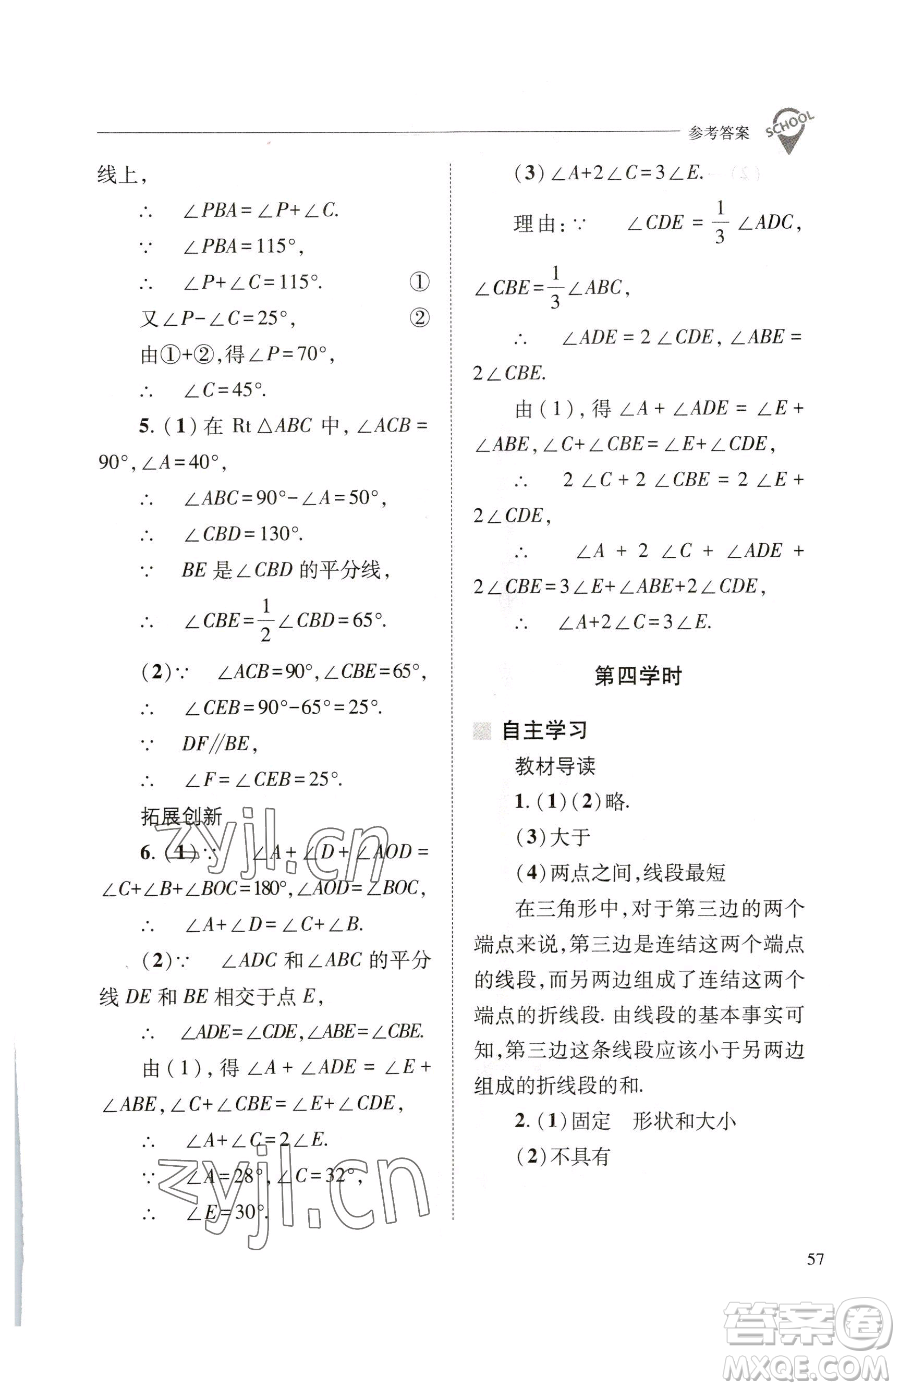 参考答案
SCHOOL
线上，
∴ ∠PBA=∠P+∠C.
∵ ∠PBA=115°,
∴ ∠P+∠C=115°. ①
又∠P-∠C=25°, ②
由①+②,得∠P=70°,
∴ ∠C=45°.
5. (1)在 Rt△ABC 中,∠ACB=
90°,∠A=40°,
∴ ∠ABC=90°-∠A=50°,
∴ ∠CBD=130°.
∵ BE 是∠CBD 的平分线,
∴ ∠CBE=1/2∠CBD=65°.
(2)∵ ∠ACB=90°,∠CBE=65°,
∴ ∠CEB=90°-65°=25°.
∵ DF∥BE,
∴ ∠F=∠CEB=25°.
拓展创新
6. (1)∵ ∠A+∠D+∠AOD=
∠C+∠B+∠BOC=180°,∠AOD=∠BOC,
∴ ∠A+∠D=∠C+∠B.
(2)∵ ∠ADC 和∠ABC 的平分
线 DE 和 BE 相交于点 E,
∴ ∠ADE=∠CDE,∠ABE=∠CBE.
由(1),得∠A+∠ADE=∠E+
∠ABE,∠C+∠CBE=∠E+∠CDE,
∴ ∠A+∠C=2∠E.
∵ ∠A=28°,∠C=32°,
∴ ∠E=30°.
(3)∠A+2∠C=3∠E.
理由:∵ ∠CDE=1/3∠ADC,
∠CBE=1/3∠ABC,
∴ ∠ADE=2∠CDE,∠ABE=
2∠CBE.
由(1),得∠A+∠ADE=∠E+
∠ABE,∠C+∠CBE=∠E+∠CDE,
∴ 2∠C+2∠CBE=2∠E+
2∠CDE,
∴ ∠A+2∠C+∠ADE+
2∠CBE=3∠E+∠ABE+2∠CDE,
∴ ∠A+2∠C=3∠E.
第四学时
自主学习
教材导读
1. (1)(2)略.
(3)大于
(4)两点之间,线段最短
在三角形中,对于第三边的两个
端点来说,第三边是连结这两个端点
的线段,而另两边组成了连结这两个
端点的折线段. 由线段的基本事实可
知,第三边这条线段应该小于另两边
组成的折线段的和.
2. (1)固定 形状和大小
(2)不具有
57
zyjl.cn
zyjl.cn
答案圈
MXQE.COM